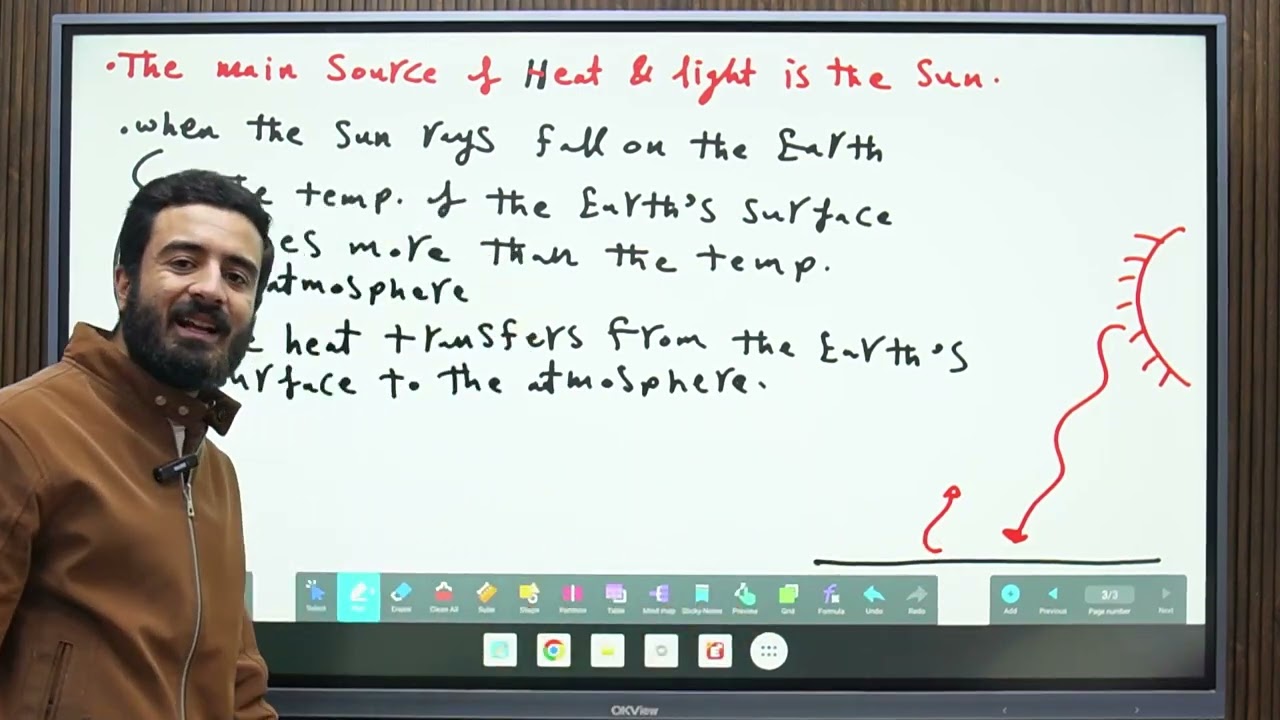 • The main Source of Heat & light is the Sun.
• when the Sun rays fall on the Earth
temp. of the Earth's surface
more than the temp.
atmosphere
heat transfers from the Earth's
to the atmosphere.
Select
Pen
Eraser
Clean All
Ruler
Shape
Remove
Table
Mind map
Sticky-Notes
Preview
Grid
Formula
Undo
Redo
Add
Previous
3/3
Page number
Next
OKView